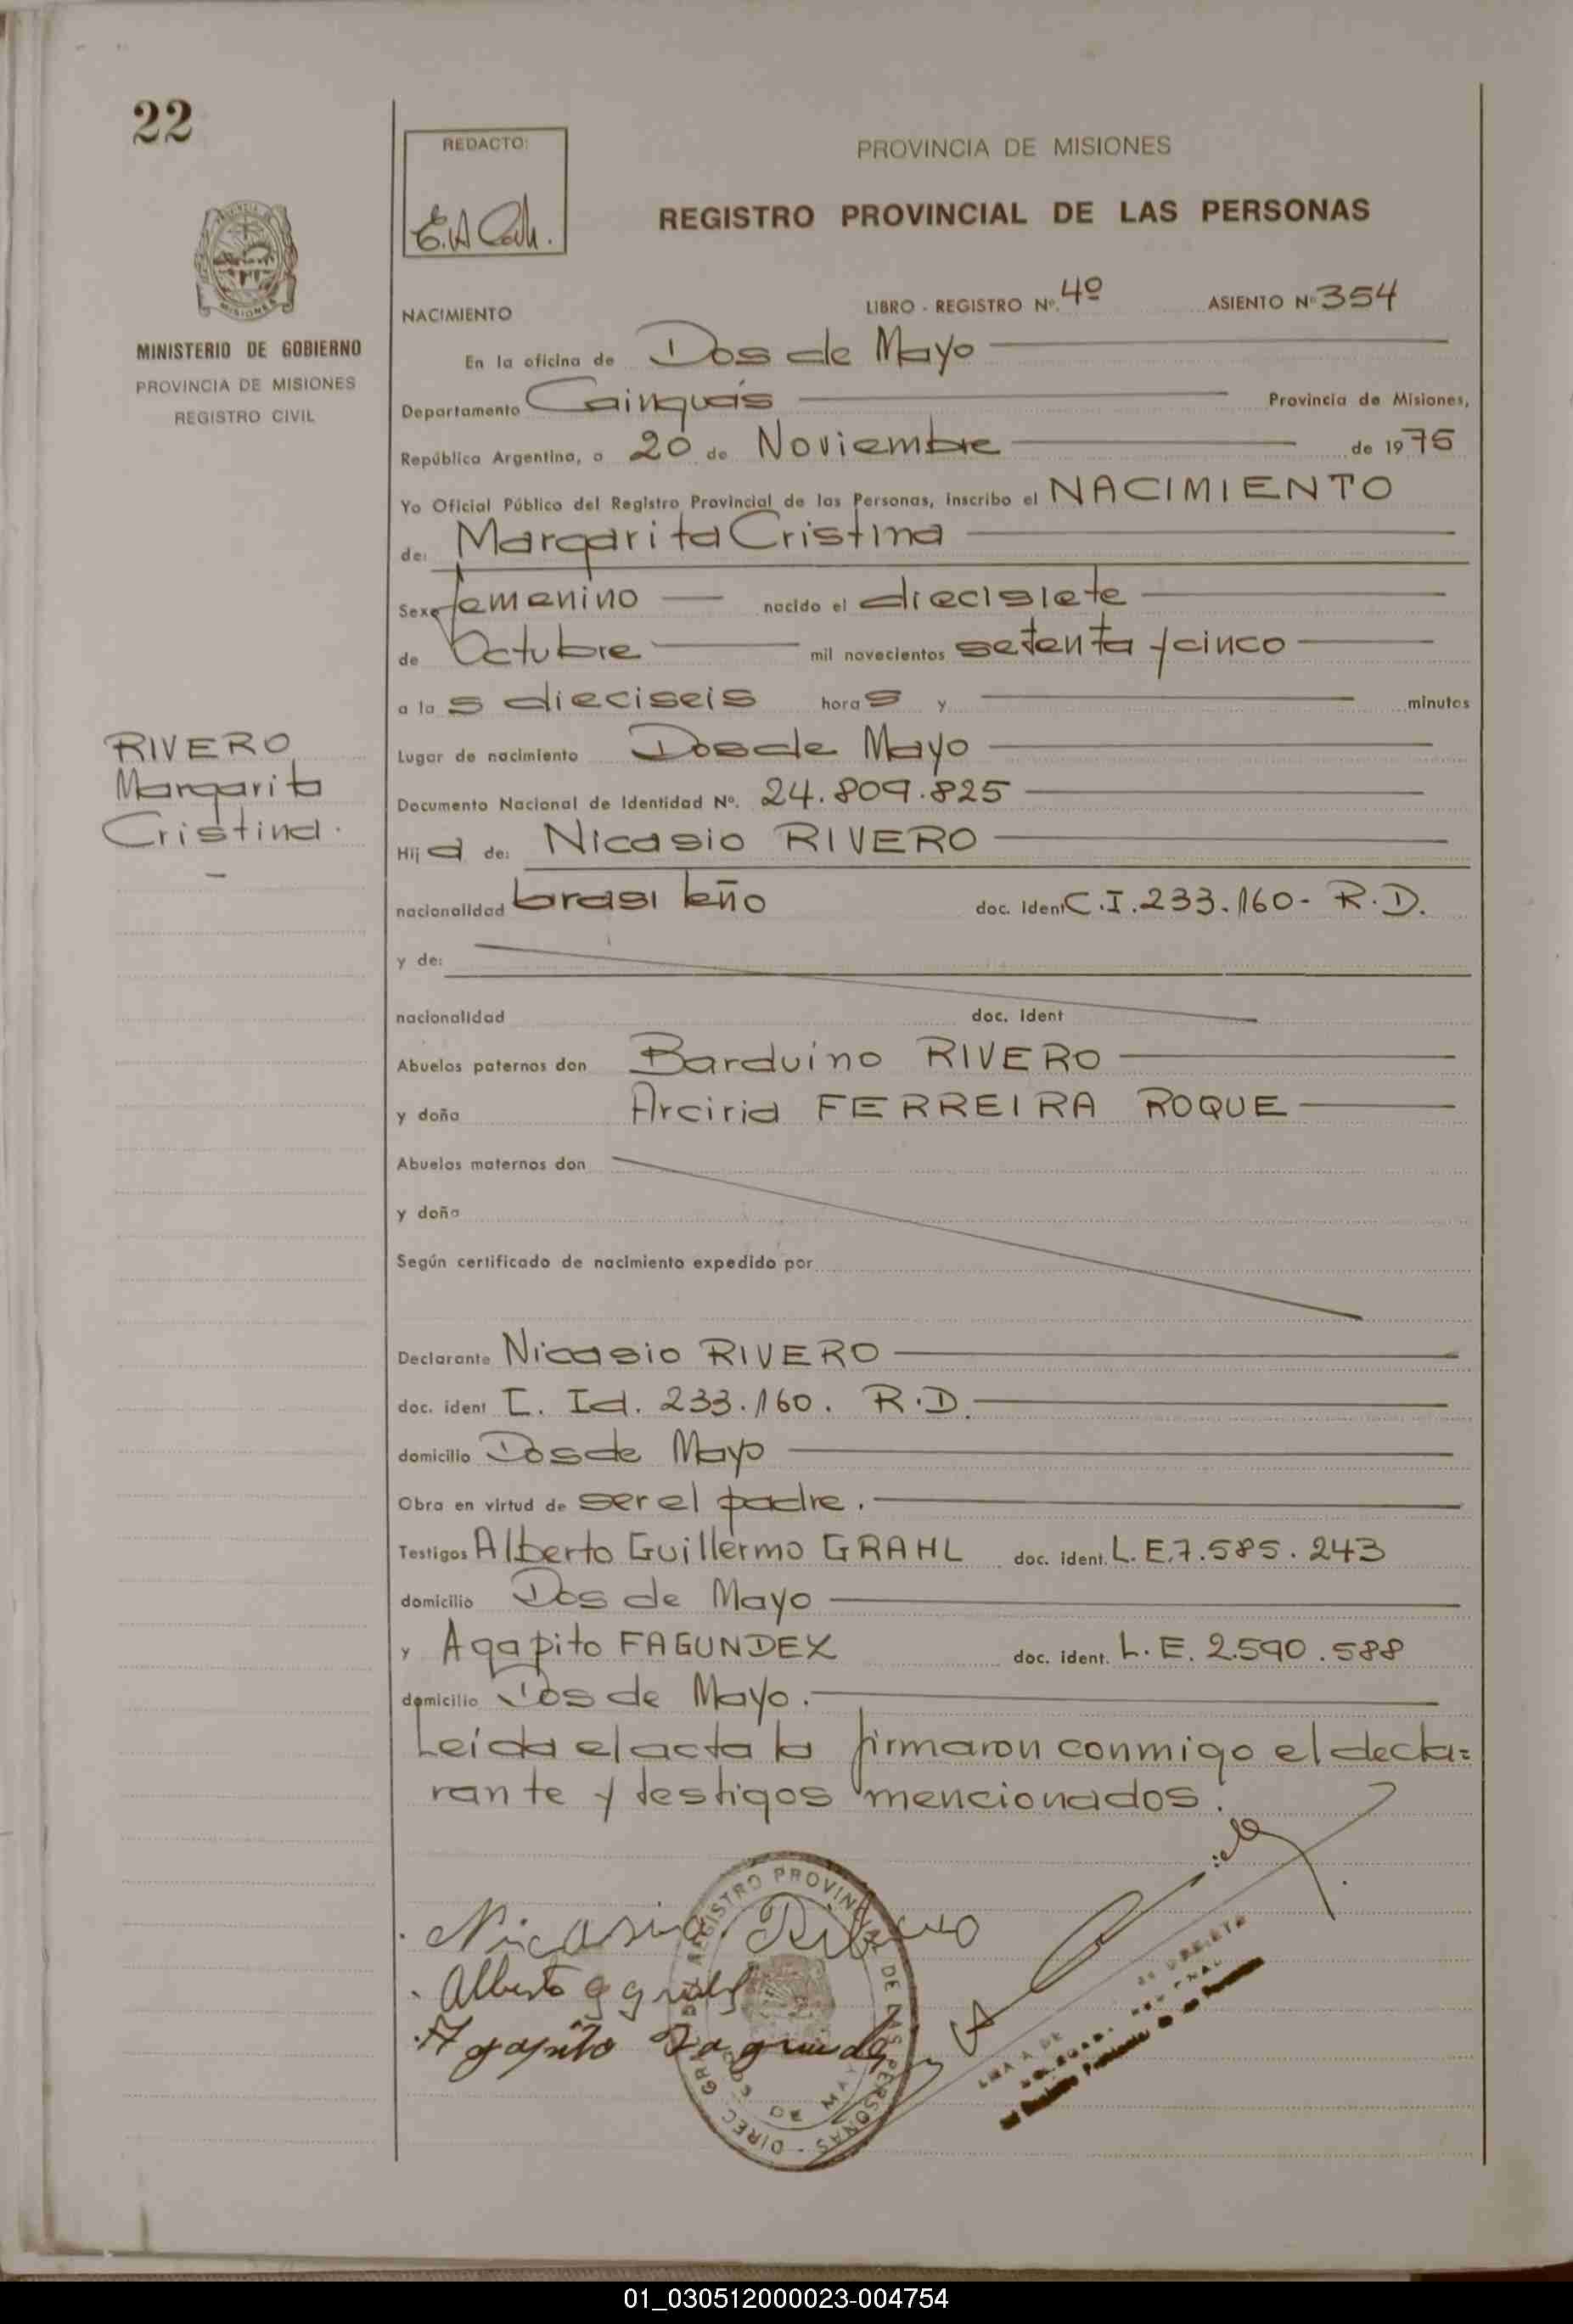 22
REDACTO:
E.A Cah.
PROVINCIA DE MISIONES
REGISTRO PROVINCIAL DE LAS PERSONAS
MISIONES
MINISTERIO DE GOBIERNO
PROVINCIA DE MISIONES
REGISTRO CIVIL
NACIMIENTO LIBRO - REGISTRO Nº. 4º ASIENTO Nº 354
En la oficina de Dos de Mayo
Departamento Cainguás Provincia de Misiones,
República Argentina, a 20 de Noviembre de 1975
Yo Oficial Público del Registro Provincial de las Personas, inscribo el NACIMIENTO
de: Margarita Cristina
Sexo femenino nacido el diecisiete
de Octubre mil novecientos setenta y cinco
a la s dieciseis hora s y minutos
RIVERO
Margarita
Cristina.
Lugar de nacimiento Dos de Mayo
Documento Nacional de Identidad Nº. 24.809.825
Hij a de: Nicasio RIVERO
nacionalidad brasileño doc. Ident C.I. 233.160- R.D.
y de:
nacionalidad doc. Ident
Abuelos paternos don Barduino RIVERO
y doña Arciria FERREIRA ROQUE
Abuelos maternos don
y doña
Según certificado de nacimiento expedido por
Declarante Nicasio RIVERO
doc. ident C. Id. 233.160. R.D.
domicilio Dos de Mayo
Obra en virtud de ser el padre.
Testigos Alberto Guillermo GRAHL doc. ident. L.E. 7.585.243
domicilio Dos de Mayo
y Agapito FAGUNDEX doc. ident. L.E. 2.590.588
domicilio Dos de Mayo.
Leída el acta la firmaron conmigo el decla=
rante y testigos mencionados.
REGISTRO PROVINCIAL DE LAS PERSONAS - DIREC. GRAL.
DOS DE MAYO
Nicasio Ribero
Alberto G grahl
Agapito Fagundes
01_030512000023-004754